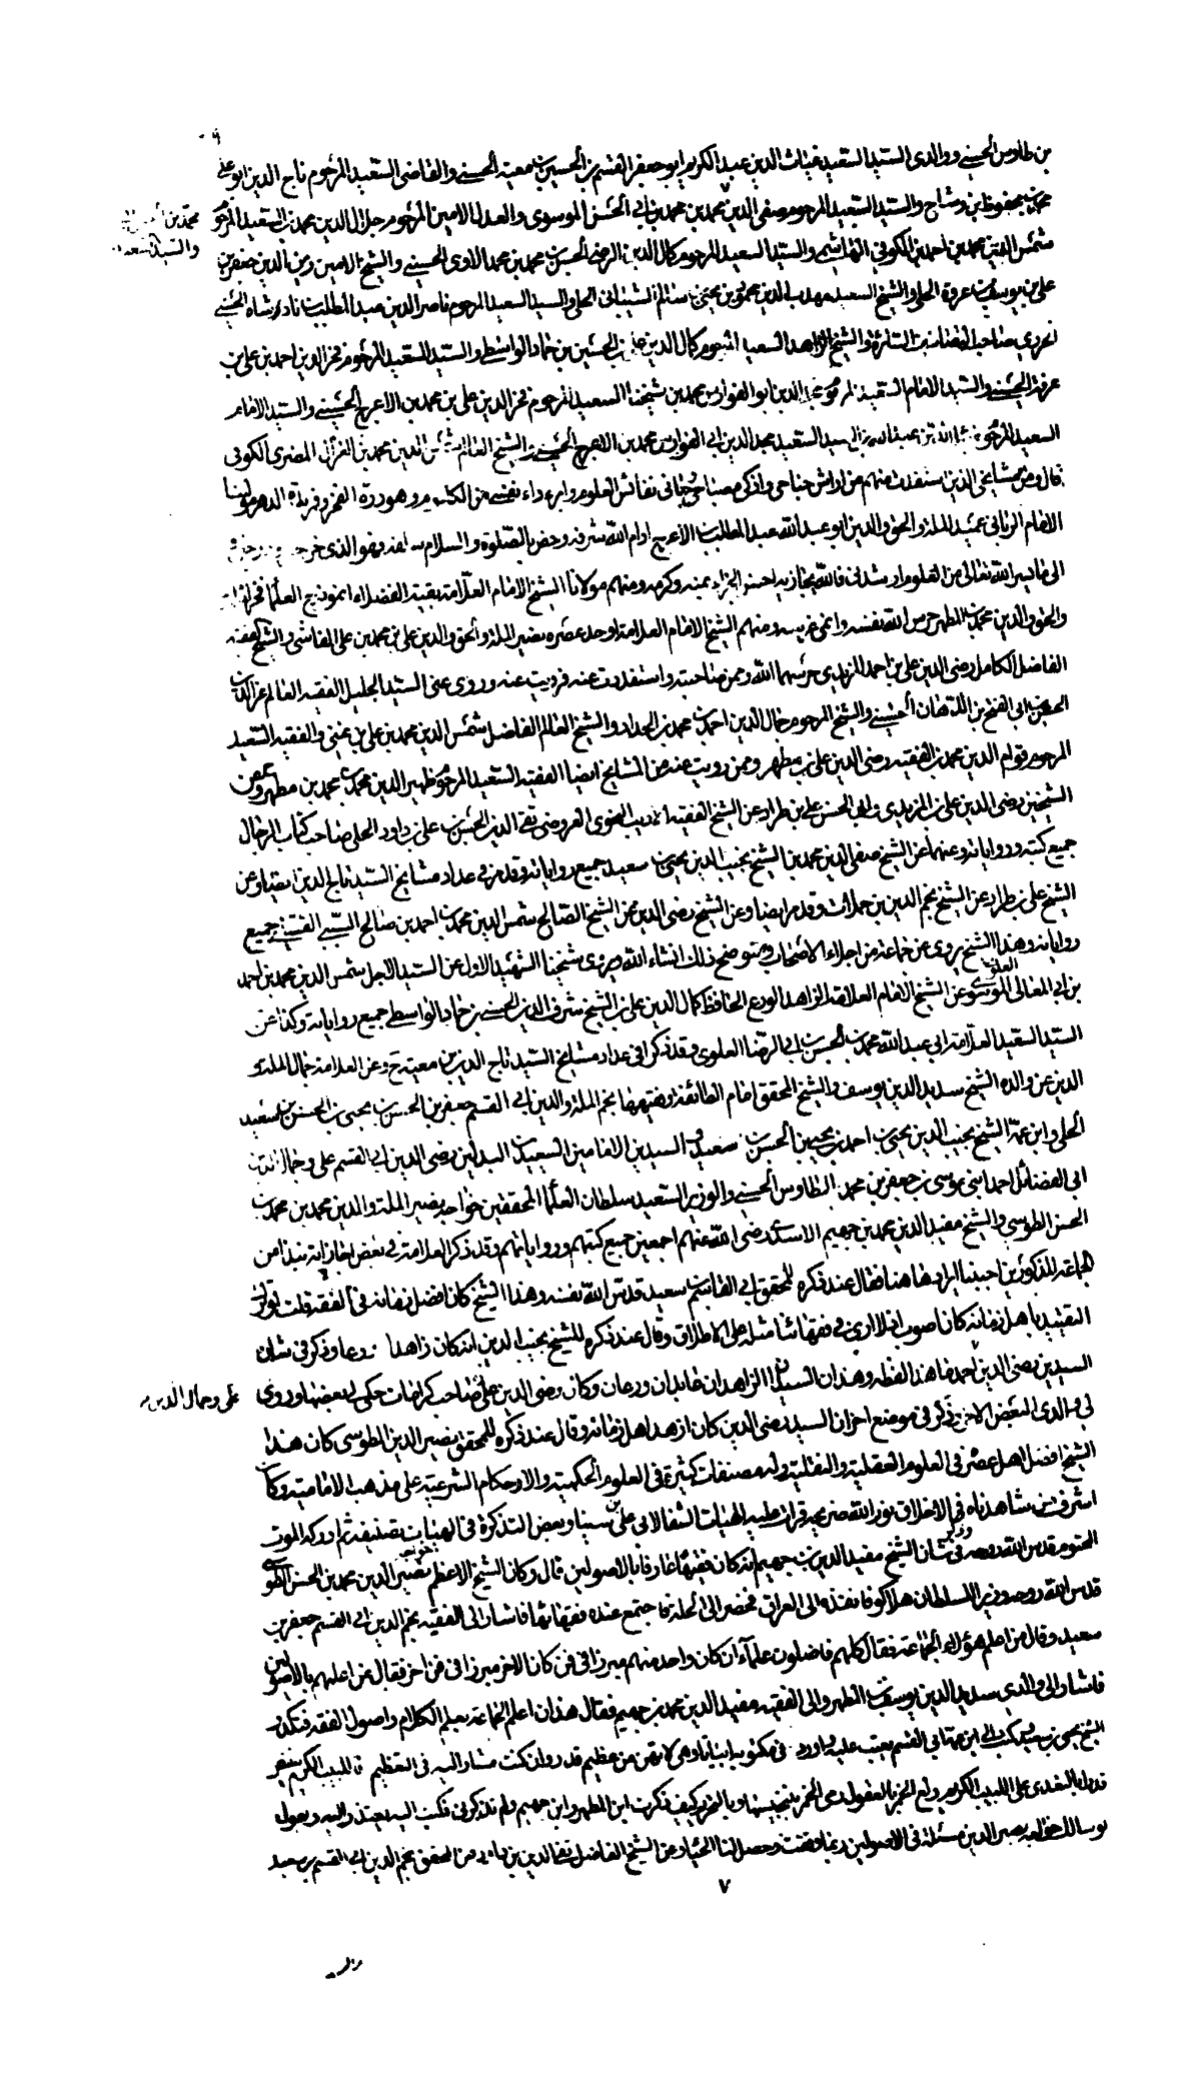 بن طاوس الحسني ووالدي السيد السعيد غياث الدين عبد الكريم ابو جعفر القسم بن الحسين بن معية الحسني والقاضي السعيد المرحوم تاج الدين ابو علي
محمد بن محفوظ بن وشاح والسيد السعيد المرحوم صفي الدين محمد بن محمد بن ابي الحسن الموسوي والعدل الامين المرحوم جلال الدين محمد بن السعيد المرحوم
محمد بن
والسيد السعيد
شمس الدين محمد بن احمد بن الكوفي الهاشمي والسيد السعيد المرحوم كمال الدين الرضي الحسن بن محمد بن محمد الاوي الحسيني والشيخ الامين زين الدين جعفر بن
علي بن يوسف بن عروة الحلي والشيخ السعيد مهذب الدين محمود بن يحيى بن سالم الشيباني الحلي والسيد السعيد المرحوم ناصر الدين عبد المطلب بن بادشاه الحسيني
الخرزي صاحب التصانيف السائرة والشيخ الزاهد السعيد المرحوم كمال الدين علي بن الحسين بن حماد الواسطي والسيد السعيد المرحوم فخر الدين احمد بن علي بن
عرفة الحسيني والسيد الامام السعيد المرحوم مجد الدين ابو الفوارس محمد بن شيخنا السعيد المرحوم فخر الدين علي بن محمد بن الاعرج الحسيني والسيد الامام
السعيد المرحوم ضياء الدين عبد الله بن السيد السعيد مجد الدين ابي الفوارس محمد بن الاعرج الحسيني والشيخ العالم شمس الدين محمد بن الغزال المضري الكوفي
قال ومن مشايخي الذين استفدت منهم من اراش جناحي واذكى مصباحي وحباني نفائس العلوم وابراء داء نفسي من الكلوم وهو درة الفخر وفريدة الدهر مولينا
الامام الرباني عميد الملة والحق والدين ابو عبد الله عبد المطلب بن الاعرج ادام الله شرفه وخص بالصلوة والسلام سلفه فهو الذي خرجني ودرجني
الى ما يسر الله تعالى من العلوم ارشدني فالله يجازيه احسن الجزاء بمنه وكرمه ومنهم مولانا الشيخ الامام العلامة بقية الفضلاء انموذج العلماء فخر الملة
والحق والدين محمد بن المطهر حرس الله نفسه وانمى غرسه ومنهم الشيخ الامام العلامة اوحد عصره نصير الملة والحق والدين علي بن محمد بن علي القاشي والشيخ الفقيه
الفاضل الكامل رضي الدين علي بن احمد المزيدي حرسهما الله وممن صاحبته واستفدت عنه فرويت عنه وروى عني السيد الجليل الفقيه العالم عز الدين
الحسن بن ابي الفتح بن الدهان الحسيني والشيخ المرحوم جمال الدين احمد بن محمد بن الحداد والشيخ العالم الفاضل شمس الدين محمد بن علي بن غني والفقيه السعيد
المرحوم قوام الدين محمد بن الفقيه رضي الدين علي بن مطهر وممن رويت عنه من المشايخ ايضا الفقيه السعيد المرحوم ظهير الدين محمد بن محمد بن مطهر وعن
الشيخين رضي الدين علي بن المزيدي وابي الحسن علي بن طراد عن الشيخ الفقيه الاديب النحوي العروضي تقي الدين الحسن بن علي بن داود الحلي صاحب كتاب الرجال
جميع كتبه ورواياته وعنهما عن الشيخ صفي الدين محمد بن الشيخ نجيب الدين يحيى بن سعيد جميع رواياته وقد مر في عداد مشايخ السيد تاج الدين ايضا وعن
الشيخ علي بن طراد عن الشيخ نجم الدين بن حملات وقد مر ايضا وعن الشيخ رضي الدين عن الشيخ الصالح شمس الدين محمد بن احمد بن صالح السيبي القسيني جميع
رواياته وهذا الشيخ يروي عن جماعة من اجلاء الاصحاب وستوضح ذلك انشاء الله ويروي شيخنا الشهيد الاول عن السيد الاجل شمس الدين محمد بن احمد
العلوي
بن ابي المعالي الموسوي عن الشيخ الامام العلامة الزاهد الورع الحافظ كمال الدين علي بن الشيخ شرف الدين الحسين بن حماد الواسطي جميع رواياته وكذا عن
السيد السعيد العلامة ابي عبد الله محمد بن الحسن بن ابي الرضا العلوي وقد ذكر في عداد مشايخ السيد تاج الدين بن معية ح وعن العلامة جمال الملة و
الدين عن والده الشيخ سديد الدين يوسف والشيخ المحقق امام الطائفة وفقيهها نجم الملة والدين ابي القسم جعفر بن الحسن بن يحيى بن الحسن بن سعيد
الحلي وابن عمه الشيخ نجيب الدين يحيى بن احمد بن يحيى بن الحسن بن سعيد والسيدين الامامين السعيدين البدلين رضي الدين ابي القسم علي وجمال الدين
ابي الفضائل احمد ابني موسى بن جعفر بن محمد الطاوس الحسني والوزير السعيد سلطان العلماء المحققين خواجه نصير الملة والدين محمد بن محمد بن
الحسن الطوسي والشيخ مفيد الدين محمد بن جهيم الاسدي رضي الله عنهم اجمعين جميع كتبهم ورواياتهم وقد ذكر العلامة في بعض اجازاته نبذا من
الجماعة المذكورين احببنا ايراده هاهنا فقال عند ذكره للمحقق ابي القاسم بن سعيد قدس الله نفسه وهذا الشيخ كان افضل زمانه في الفقه قلت لو ترك
التقييد باهل زمانه كان اصوب اذ لا ارى في فقهائنا مثله على الاطلاق وقال عند ذكره للشيخ نجيب الدين انه كان زاهدا ورعا وذكر في شان
السيدين رضي الدين احمد ما هذا لفظه وهذان السيدان الزاهدان عابدان ورعان وكان رضي الدين علي صاحب كرامات حكى لي بعضها وروى
علي وجمال الدين
لي والدي البعض الاخر وذكر في موضع اخر ان السيد رضي الدين كان ازهد اهل زمانه وقال عند ذكره للمحقق نصير الدين الطوسي كان هذا
الشيخ افضل اهل عصره في العلوم العقلية والنقلية وله مصنفات كثيرة في العلوم الحكمية والاحكام الشرعية على مذهب الامامية وكان
اشرف من شاهدناه في الاخلاق نور الله ضريحه قرات عليه الهيات الشفا لابي علي بن سينا وبعض التذكرة في الهيات تصنيفه ثم ادركه الموت
المحتوم قدس الله روحه وذكر في شان الشيخ مفيد الدين بن جهيم انه كان فقيها عارفا بالاصولين قال وكان الشيخ الاعظم خواجه نصير الدين محمد بن الحسن الطوسي
قدس الله روحه وزير السلطان هلاكو فانفذه الى العراق فحضر الى الحلة فاجتمع عنده فقهائها فاشار الى الفقيه نجم الدين ابي القسم جعفر بن
سعيد وقال من اعلم هؤلاء الجماعة فقال كلهم فاضلون علماء ان كان واحد منهم مبرزا في فن كان الاخر مبرزا في فن اخر فقال من اعلمهم بالاصولين
فاشار الى والدي سديد الدين يوسف بن المطهر والى الفقيه مفيد الدين محمد بن جهيم فقال هذان اعلم الجماعة بعلم الكلام واصول الفقه فتكدر
الشيخ يحيى بن سعيد وكتب الى ابن عمه ابي القسم يعتب عليه واورد في مكتوبه ابياتا وهي لا تهن من عظيم قدر وان كنت مشارا اليه في التعظيم فاللبيب الكريم ينقص
قدرا بالتعدي على اللبيب الكريم ولع الخمر بالعقول رمى الخمر بتنجيسها وبالتحريم كيف ذكرت ابن المطهر وابن جهيم ولم تذكرني فكتب اليه يعتذر اليه ويقول
لو سالك خواجه نصير الدين مسئلة في الاصولين ربما وقفت وحصل لنا الحياء ومن الشيخ الفاضل تقي الدين بن داود عن المحقق نجم الدين ابي القسم بن سعيد
٧